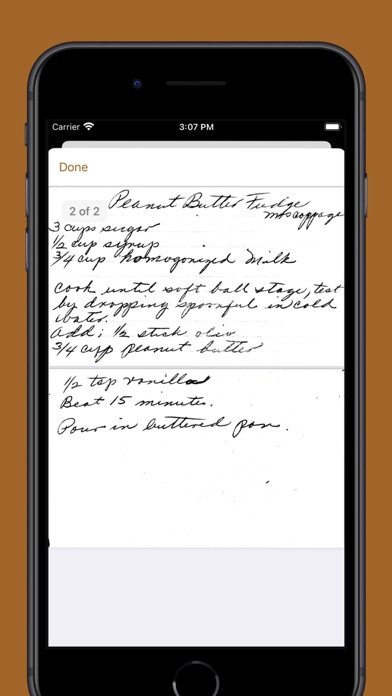 Carrier 3:07 PM
Done
2 of 2
Peanut Butter Fudge
3 cups sugar
1/2 cup syrup
3/4 cup homogonized Milk
cook until soft ball stage, test
by dropping spoonful in cold
water.
Add; 1/2 stick olio
3/4 cup peanut butter
1/2 tsp vanilla
Beat 15 minutes.
Pour in buttered pan.